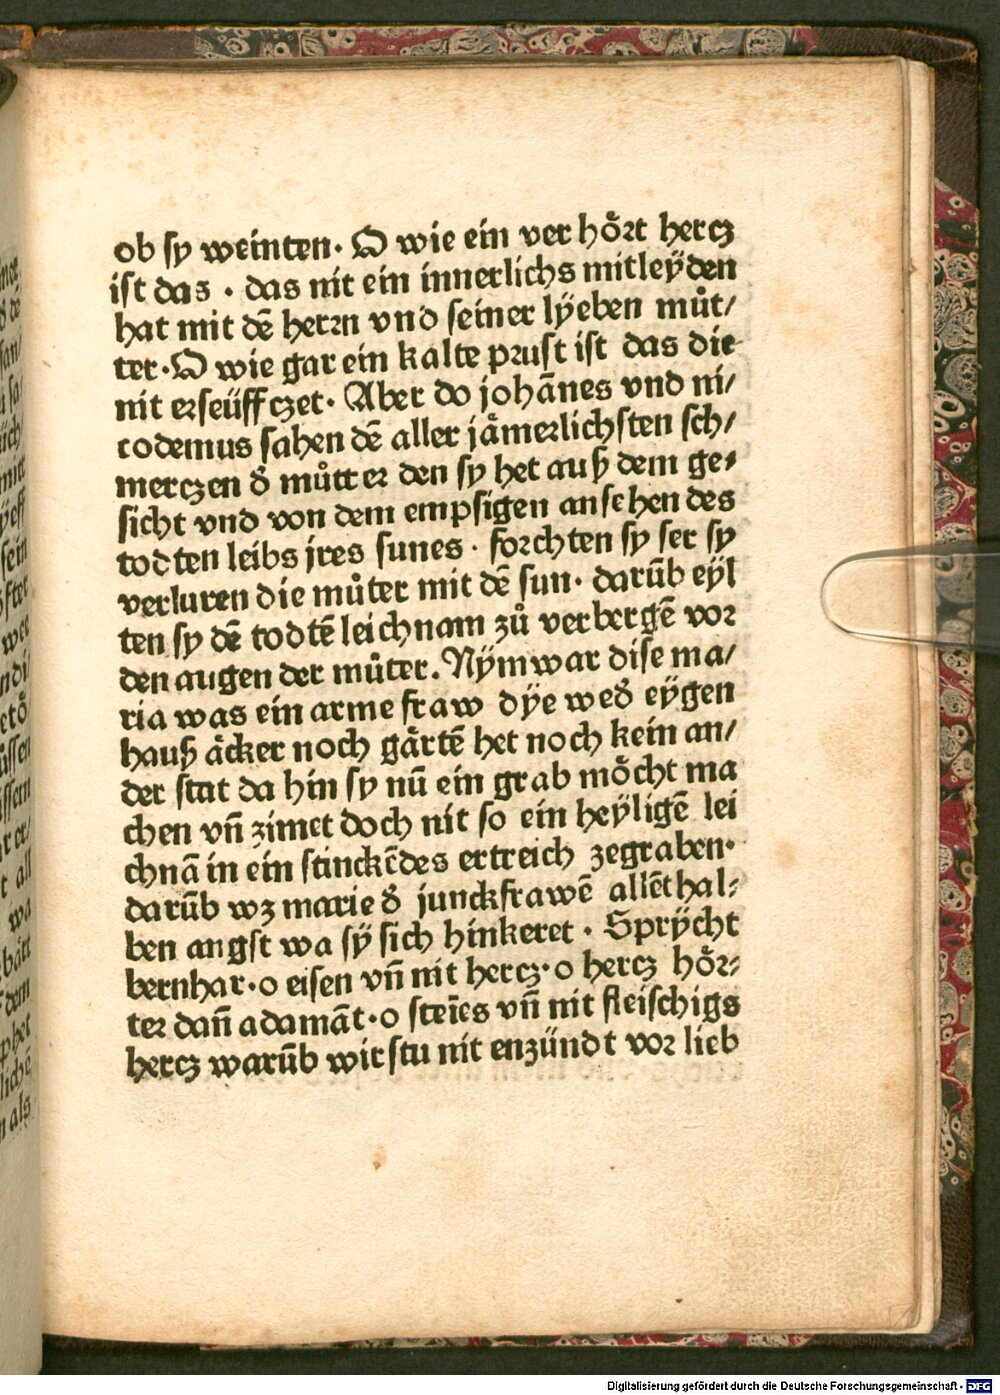 ob sy weinten. O wie ein ver hoͤrt hercz
ist das . das nit ein innerlichs mitleÿden
hat mit dē herrn vnd seiner lÿeben muͦt/
ter. O wie gar ein kalte prust ist das die
nit erseüff czet. Aber do johānes vnd ni/
codemus sahen dē aller jaͤmerlichsten sch/
merczen dˀ muͦtter den sy het auß dem ge/
sicht vnd von dem empsigen ansehen des
todten leibs jres sunes . forchten sy ser sy
verluren die muͦter mit dē sun. darūb eÿl
ten sy dē todtē leichnam zuͦ verbergē vor
den augen der muͦter. Nÿm war dise ma/
ria was ein arme fraw dÿe wedˀ eÿgen
hauß aͤcker noch gaͤrtē het noch kein an/
der stat da hin sy nū ein grab moͤcht ma
chen vn̄ zimet doch nit so ein heÿligē lei
chnā in ein stinckēdes ertreich zegraben.
darūb wz marie dˀ junckfrawē allēthal/
ben angst wa sÿ sich hinkeret . Sprÿcht
bernhar. o eisen vn̄ nit hercz. o hercz hoͤr/
ter dan̄ adamāt. o steīes vn̄ nit fleischigs
hercz warūb wirstu nit enzündt vor lieb
Digitalisierung gefördert durch die Deutsche Forschungsgemeinschaft - DFG